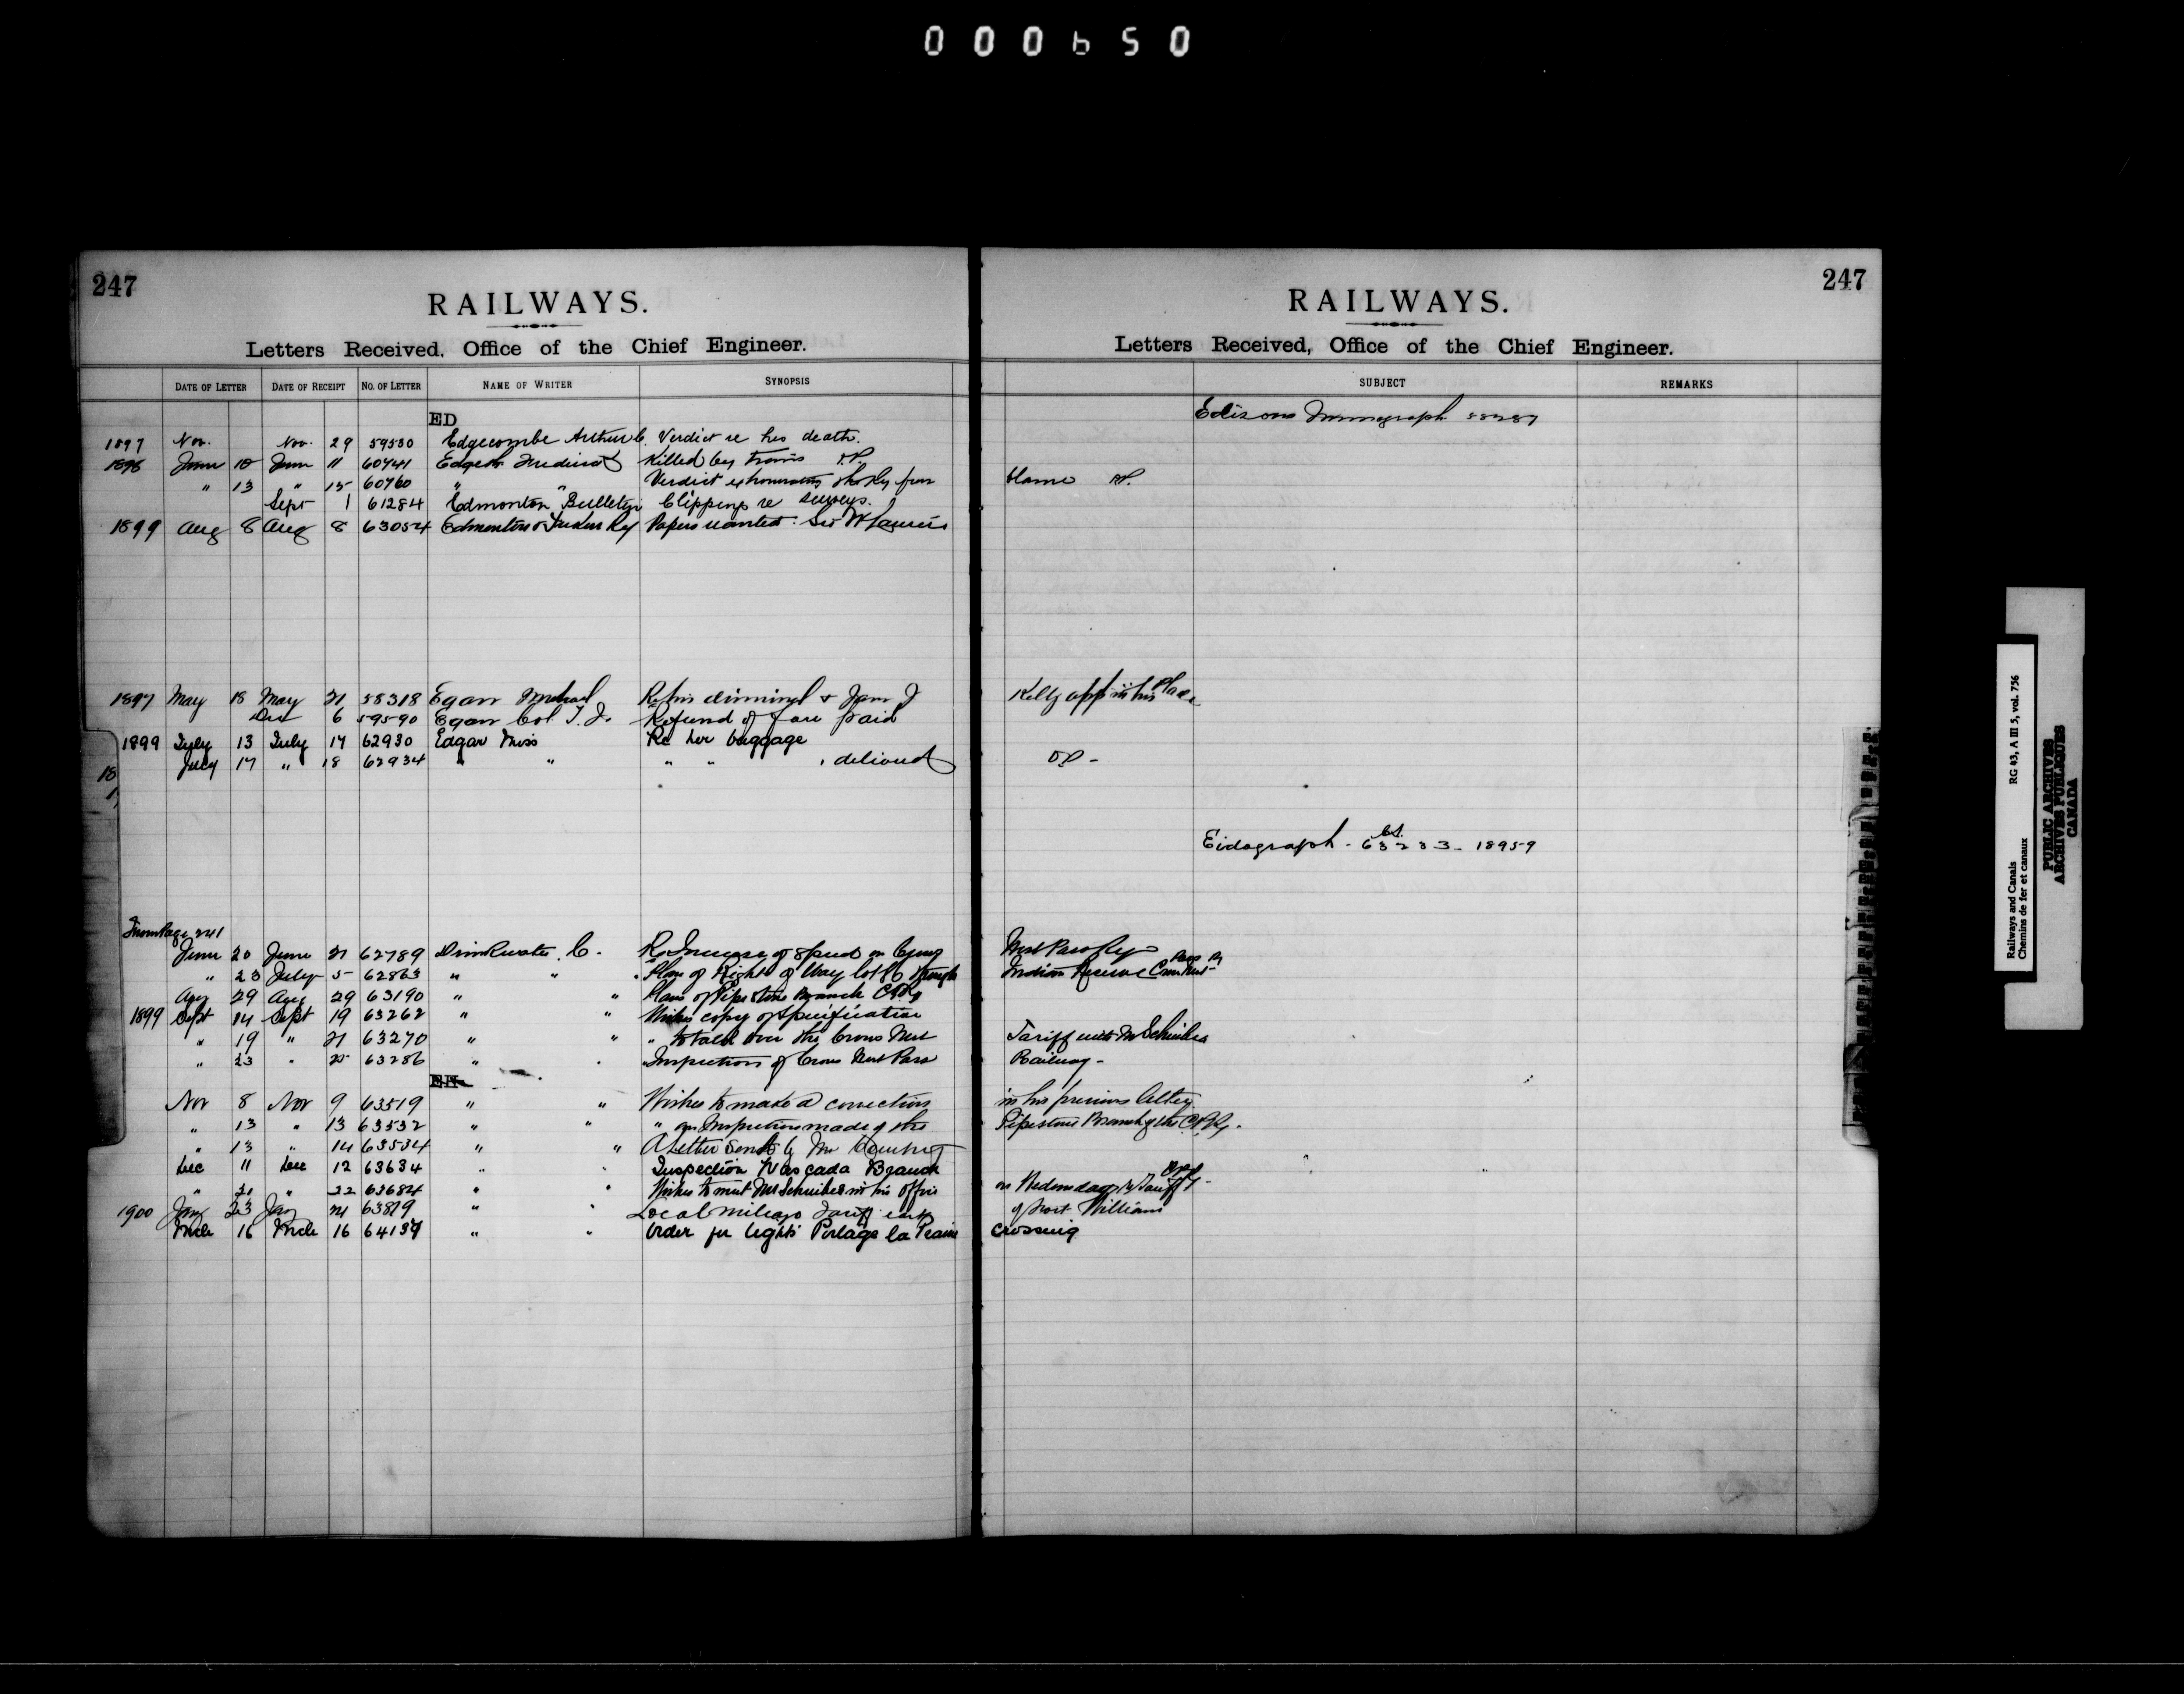 000650
247
RAILWAYS.
Letters Received, Office of the Chief Engineer.
DATE OF LETTER DATE OF RECEIPT NO. OF LETTER NAME OF WRITER SYNOPSIS
ED
1897 Nov. Nov. 29 59530 Edgecombe Arthur C. Verdict re his death.
1898 June 10 June 11 60741 Killed by train
" 13 " 15 60760 " " Verdict
Sept 1 61284 Edmonton Bulletin Clipping re surveys.
1899 Aug 8 Aug 8 63054 Edmonton & Ry Papers wanted: Sir W Laurier
1897 May 18 May 21 58318 Egan Michael Re his dismissal &
Dec 6 59590 Egan Col. T. J. Refund of fare paid
1899 July 13 July 17 62930 Edgar Miss Re her baggage
July 17 " 18 62934 " " " "
From Page 241
June 20 June 21 62789 Drinkwater C. Re Increase of speed on Crows
" 23 July 5 62863 " " " Plan of Right of Way through
Aug 29 Aug 29 63190 " " Plans of Pipestone Branch CPRy
1899 Sept 14 Sept 19 63262 " " Wishes copy of Specification
" 19 " 21 63270 " " " to talk over the Crows Nest
" 23 " 25 63286 " " Inspection of Crows Nest Pass
EH
Nov 8 Nov 9 63519 " " Wishes to make a correction
" 13 " 13 63532 " " " an Inspection made of the
" 13 " 14 63534 " " A letter sent by Mr
Dec 11 Dec 12 63634 " " Inspection Wascada Branch
" 21 " 22 63684 " " Wishes to meet Mr Schreiber in his office
1900 Jany 23 Jany 24 63819 " " Local mileage Tariff east
Mch 16 Mch 16 64139 " " Order for lights Portage la Prairie
247
RAILWAYS.
Letters Received, Office of the Chief Engineer.
SUBJECT REMARKS
Edisons 58287
blame
Kelly app in his place
Eidograph - 63233 - 18959
Nest Pass Ry
Indian Reserve Crow Nest Pass Ry
Tariff with Mr Schreiber
Railway -
in his previous letter
Pipestone Branch of the CPRy.
on Wednesday
of Fort William
crossing
Railways and Canals RG 43, A III 5, vol. 756
Chemins de fer et canaux
PUBLIC ARCHIVES
ARCHIVES PUBLIQUES
CANADA